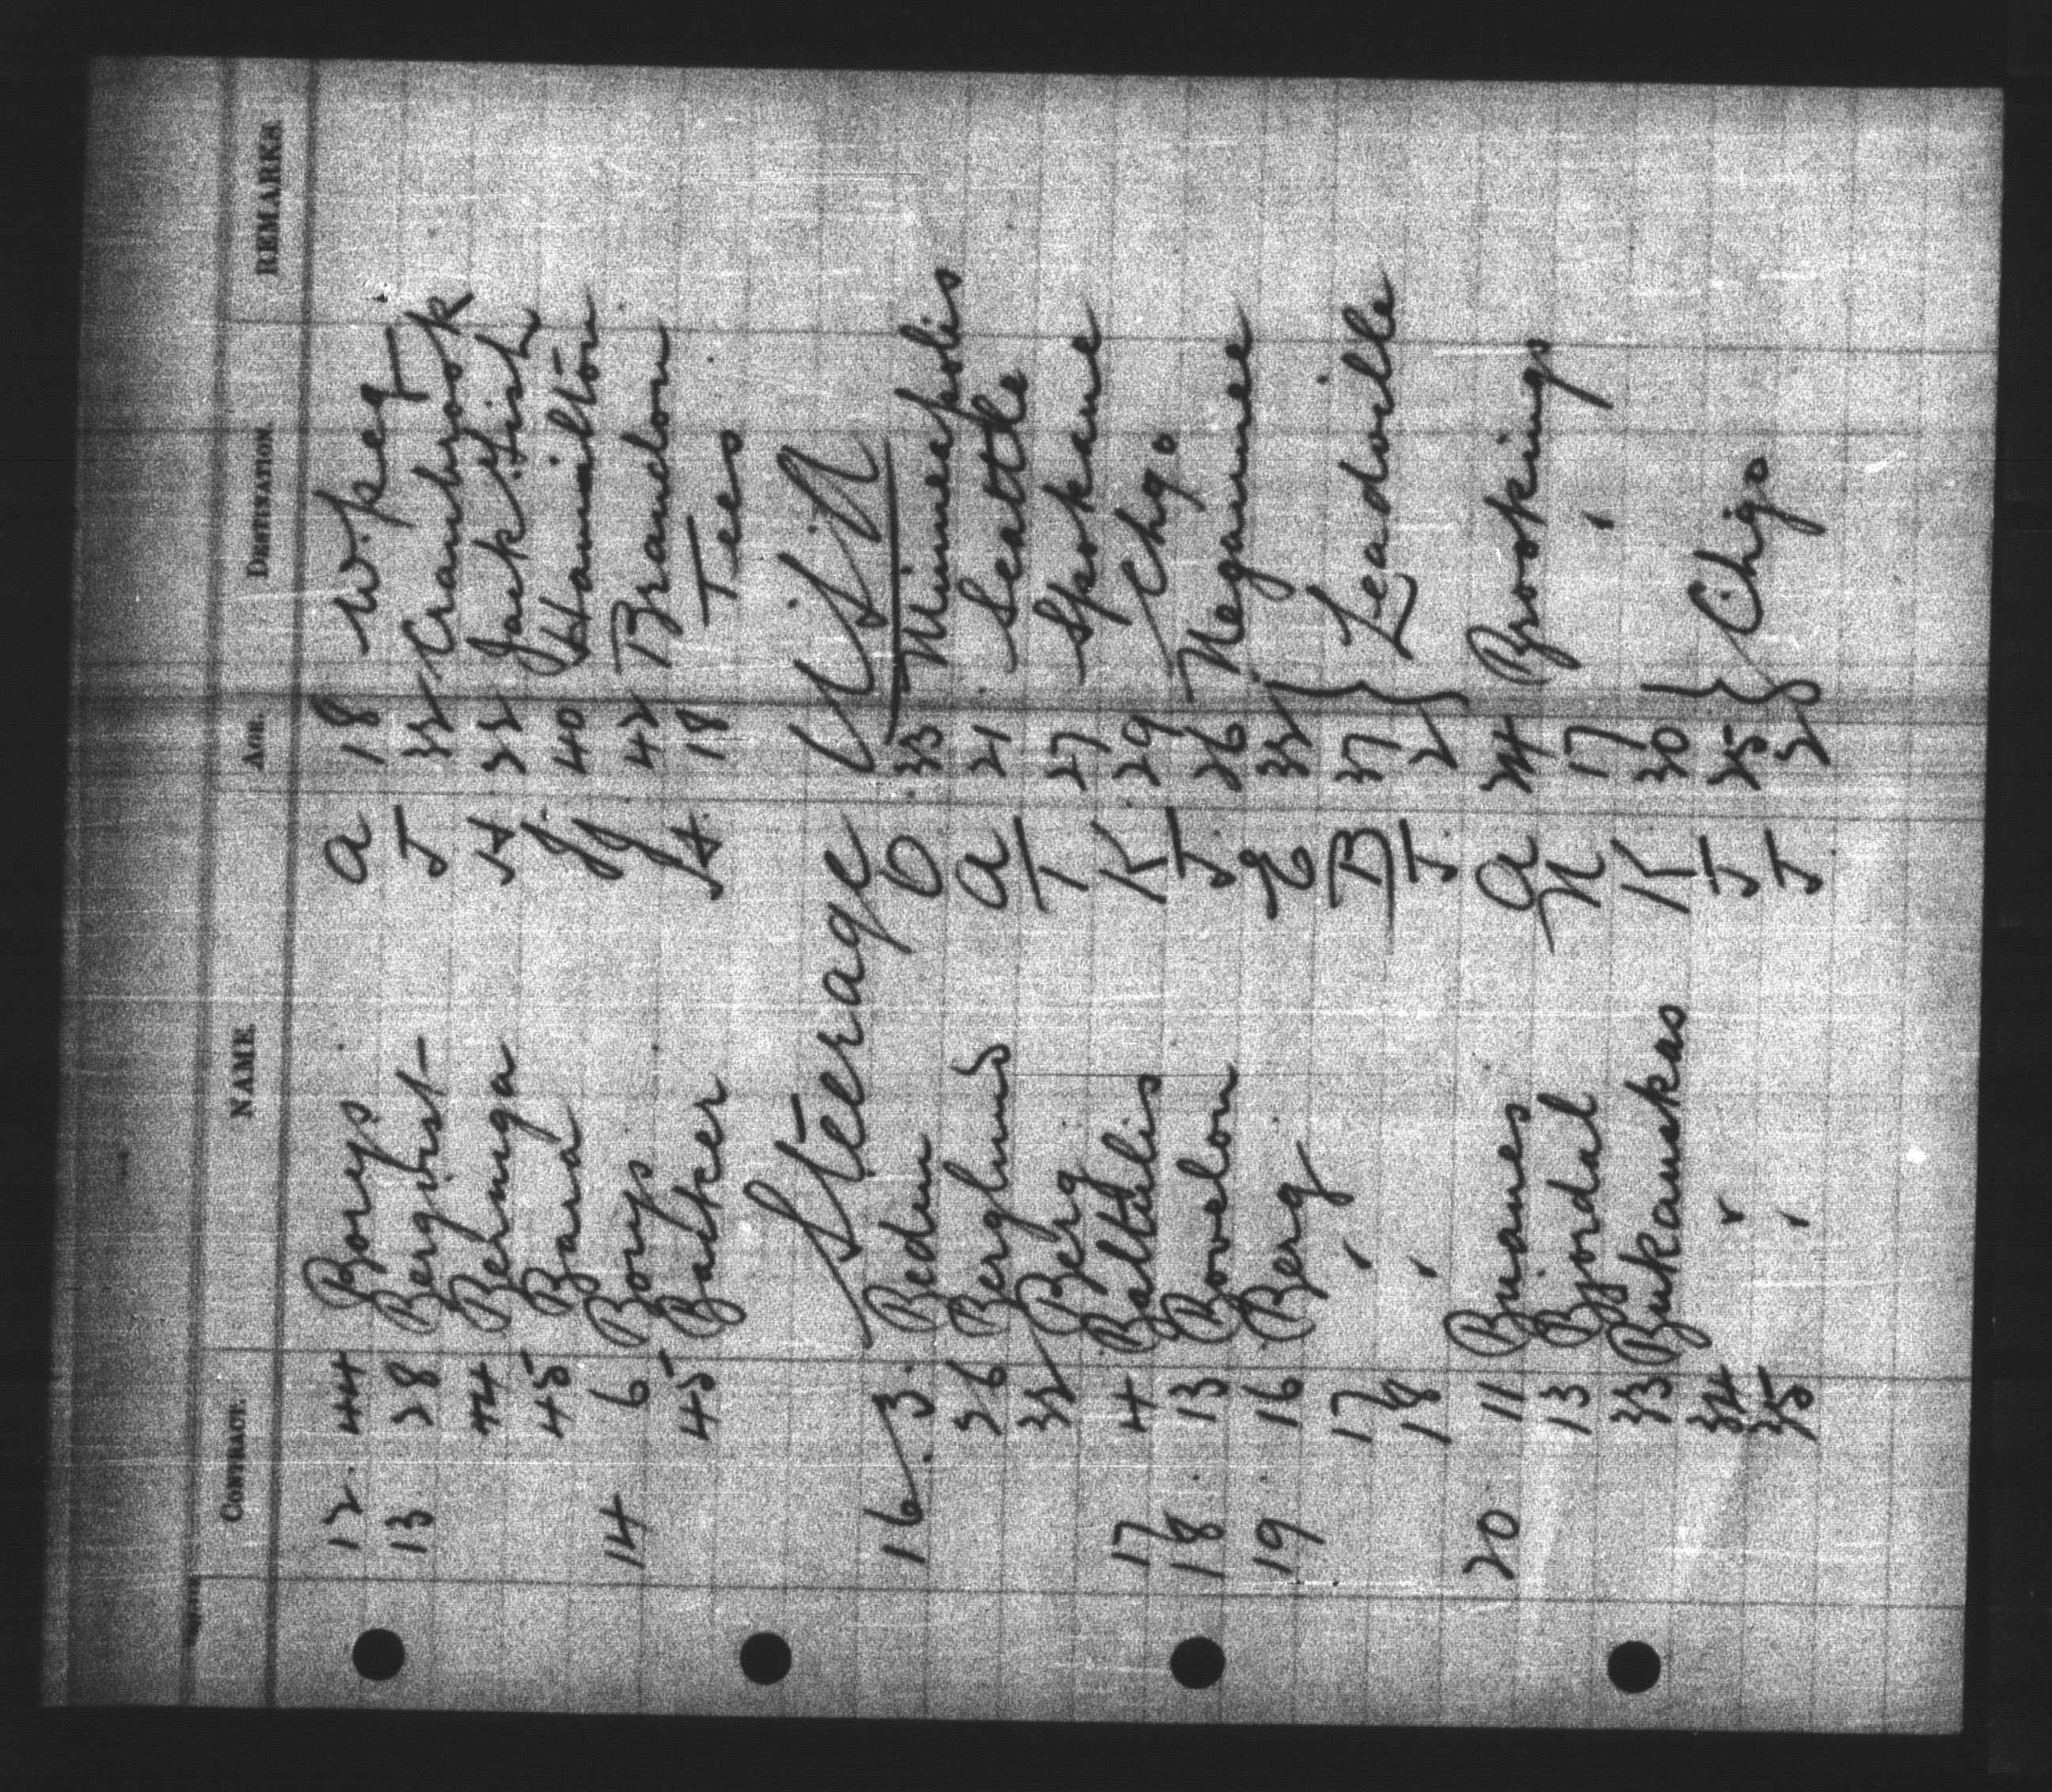 CONTRACT. NAME. AGE. DESTINATION. REMARKS.
12. 44 Borys A 18 W.peg
13 28 Bergqvist J 32 Cranbrook
44 Beringa A 22 Jack Fish
45 Barra J 40 Hamilton
14 6 Borys J 42 Brandon
45 Barker A 18 Tees
Steerage U.S.A
16. 3. Bedin O 33 Minneapolis
26 Berglund A 21 Seattle
32 Berg T 27 Spokane
17 4 Balttulis K 29 Chgo
18 13 Bovelon J 26 Negaunee
19 16 Berg E 32 }
17 " B 37 } Leadville
18 " J 2 }
20 11 Buanes A 24 Brookings
13 Bjordal N 17 "
33 Bukauskas K 30 }
34 " J 25 } Chigo
35 " J 2 }